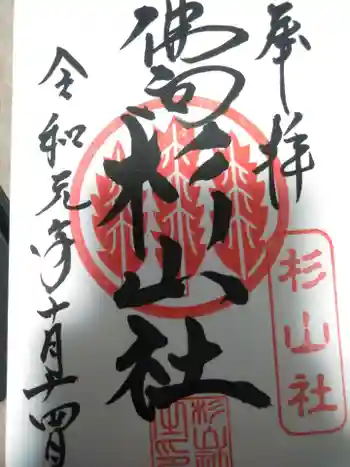 奉拝
佛向
杉山社
杉山社
令和元年十月十四日
杉山社
之印